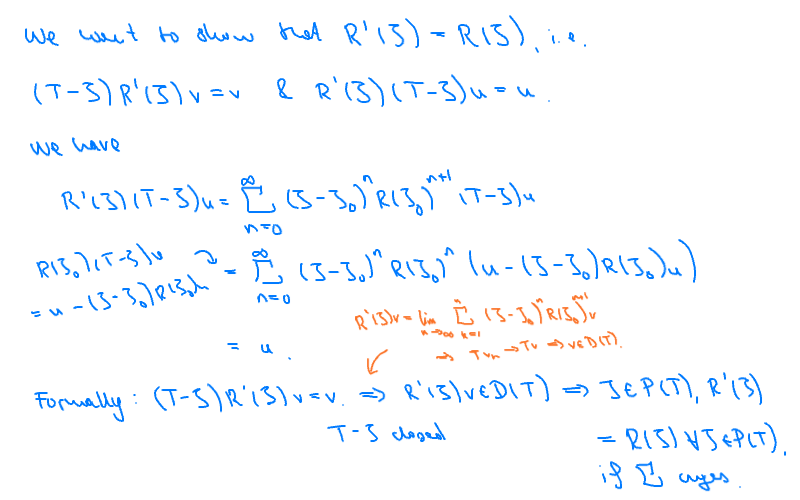 We want to show that R'(ζ) = R(ζ), i.e.
(T-ζ)R'(ζ)v=v & R'(ζ)(T-ζ)u=u.
We have
R'(ζ)(T-ζ)u = ∑_{n=0}^{∞} (ζ-ζ₀)^n R(ζ₀)^{n+1} (T-ζ)u
R(ζ₀)(T-ζ)u = u-(ζ-ζ₀)R(ζ₀)u
= ∑_{n=0}^{∞} (ζ-ζ₀)^n R(ζ₀)^n (u-(ζ-ζ₀)R(ζ₀)u)
R'(ζ)v = lim_{n→∞} ∑_{k=1}^{n} (ζ-ζ₀)^n R(ζ₀)^{n+1} v
= u.
⇒ Tvₙ → Tv ⇒ v∈D(T).
Formally: (T-ζ)R'(ζ)v=v. ⇒ R'(ζ)v∈D(T) ⇒ ζ∈P(T), R'(ζ)
T-ζ closed
= R(ζ) ∀ζ∈P(T),
if ∑ cvges.